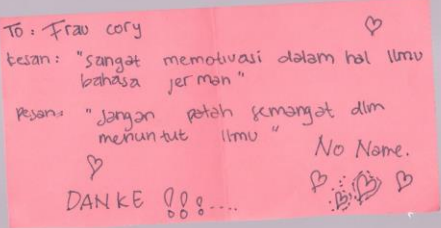 To : Frau cory
kesan : "sangat memotivasi dalam hal Ilmu
bahasa jerman"
pesan : "Jangan patah semangat dlm
menuntut Ilmu"
No Name.
DANKE !!!....